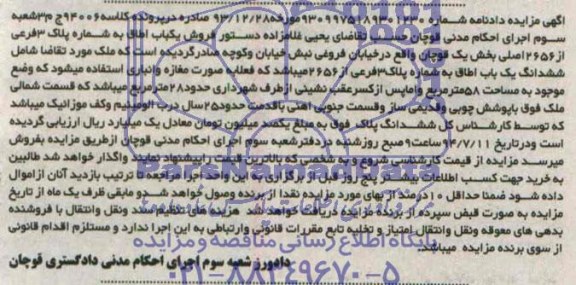 آگهی مزایده دادنامه شماره ۹۳۰۹۹۷۵۱۸۹۳۰۱۲۳۰ مورخه ۹۳/۱۲/۲۸ صادره درپرونده کلاسه ۱۴۰۰۶ ج م ۳ شعبه
سوم اجرای احکام مدنی قوچان حسب تقاضای یحیی غلامزاده دستور فروش یکباب اطاق به شماره پلاک ۳ فرعی
از ۲۶۵۶ اصلی بخش یک قوچان واقع درخیابان فروغی نبش خیابان وکوچه صادرگردیده است که ملک مورد تقاضا شامل
ششدانگ یک باب اطاق به شماره پلاک ۳ فرعی از ۲۶۵۶ میباشد که فعلابه صورت مغازه وانباری استفاده میشود که وضع
موجود به مساحت ۵۸ مترمربع واماپس ازکسرعقب نشینی ازطرف شهرداری حدود ۲۸ مترمربع میباشد که قسمت شمالی
ملک فوق باپوشش چوبی وقدیمی ساز وقسمت جنوبی آهنی باقدمت حدود ۲۵ سال درب آلومینیم وکف موزائیک میباشد
که توسط کارشناس کل ششدانگ پلاک فوق به مبلغ یکصد میلیون تومان معادل یک میلیارد ریال ارزیابی گردیده
است ودرتاریخ ۹۴/۷/۱۱ ساعت ۹ صبح روزشنبه دردفترشعبه سوم اجرای احکام مدنی قوچان ازطریق مزایده بفروش
میرسد مزایده از قیمت کارشناسی شروع و به شخصی که بالاترین قیمت راپیشنهاد نمایند واگذار خواهد شد طالبین
به خرید جهت کسب اطلاعات بیشتر و پنج روز قبل از برگزاری به این واحد اجرا مراجعه تا ترتیب بازدید آنان ازاموال
داده شود ضمنا حداقل ۱۰ درصد از بهای مورد مزایده نقدا از برنده وصول خواهد شد و مابقی ظرف یک ماه از تاریخ
مزایده به صورت قبض سپرده از برنده مزایده دریافت خواهد شد هزینه های تنظیم سند ونقل وانتقال با فروشنده
بدهی های معوقه ونقل وانتقال امتیاز و تخلیه تابع مقررات قانونی وارتباطی به این اجرا ندارد و مستلزم اقدام قانونی
از سوی برنده مزایده میباشد.
دادورز شعبه سوم اجرای احکام مدنی دادگستری قوچان
پایگاه اطلاع رسانی مناقصه و مزایده
۰۲۱-۸۸۳۴۹۶۷۰-۵